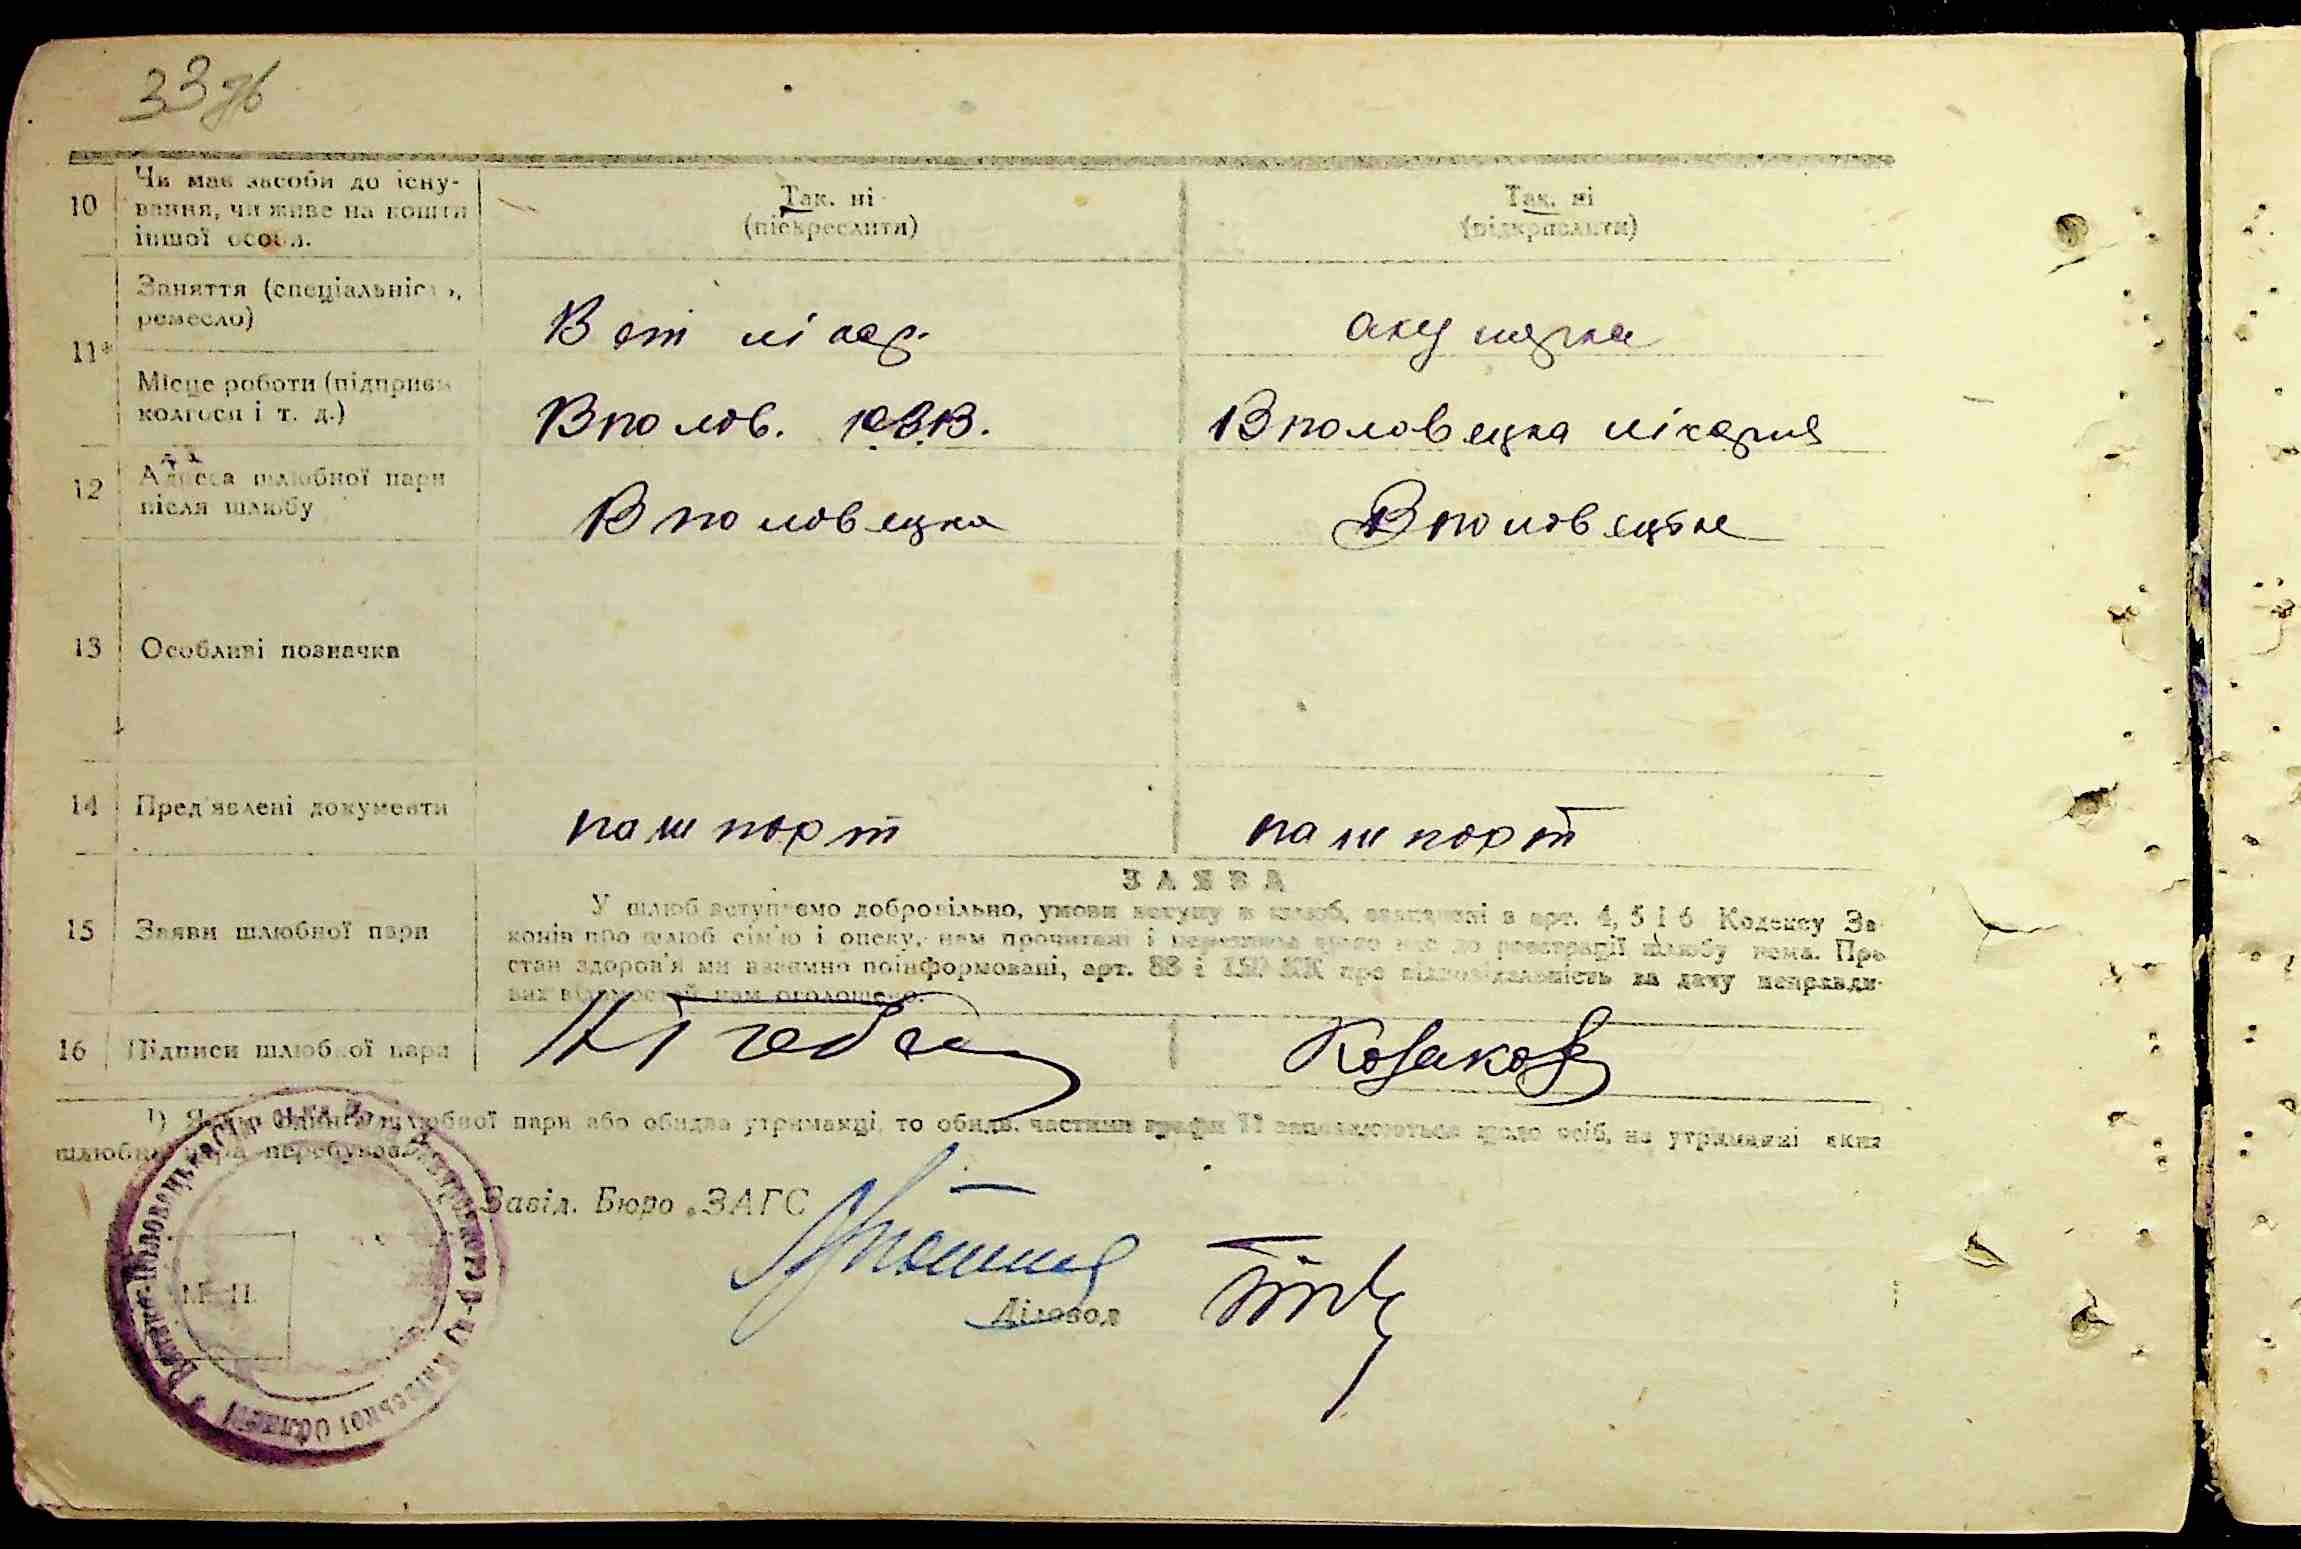 33 зв
10 Чи має засоби до існу-
вання, чи живе на кошти
іншої особи.
Так. ні
(підкреслити)
Так. ні
(підкреслити)
11* Заняття (спеціальність,
ремесло)
Вет лікар.
акушерка
Місце роботи (підприєм
колгосп і т. д.)
Вполов.
Вполовецка лікарня
12 Адреса шлюбної пари
після шлюбу
Вполовецка
Вполовецька
13 Особливі позначки
14 Пред'явлені документи
пашпорт
пашпорт
15 Заяви шлюбної пари
ЗАЯВА
У шлюб вступаємо добровільно, умови вступу в шлюб, зазначені в арт. 4, 5 і 6 Кодексу За-
конів про шлюб сім'ю і опеку, нам прочитані і перешкод щодо нас до реєстрації шлюбу нема. Про
стан здоров'я ми взаємно поінформовані, арт. 88 і КК про відповідальність за дачу неправди-
вих відомостей нам оголошено.
16 Підписи шлюбної пари
Козакова
1) Якщо один з шлюбної пари або обидва утриманці, то обидві частини графи 11 заповнюються щодо осіб, на утриманні яких
шлюбна пара перебуває.
Завід. Бюро ЗАГС
Діловод
М. П.
Велико-Половецька р-ну Київської Області